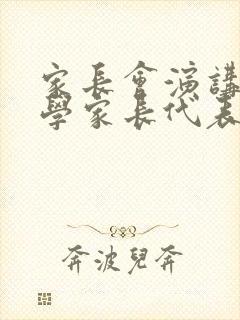 家長會演講
學家長代表
奔波兒奔